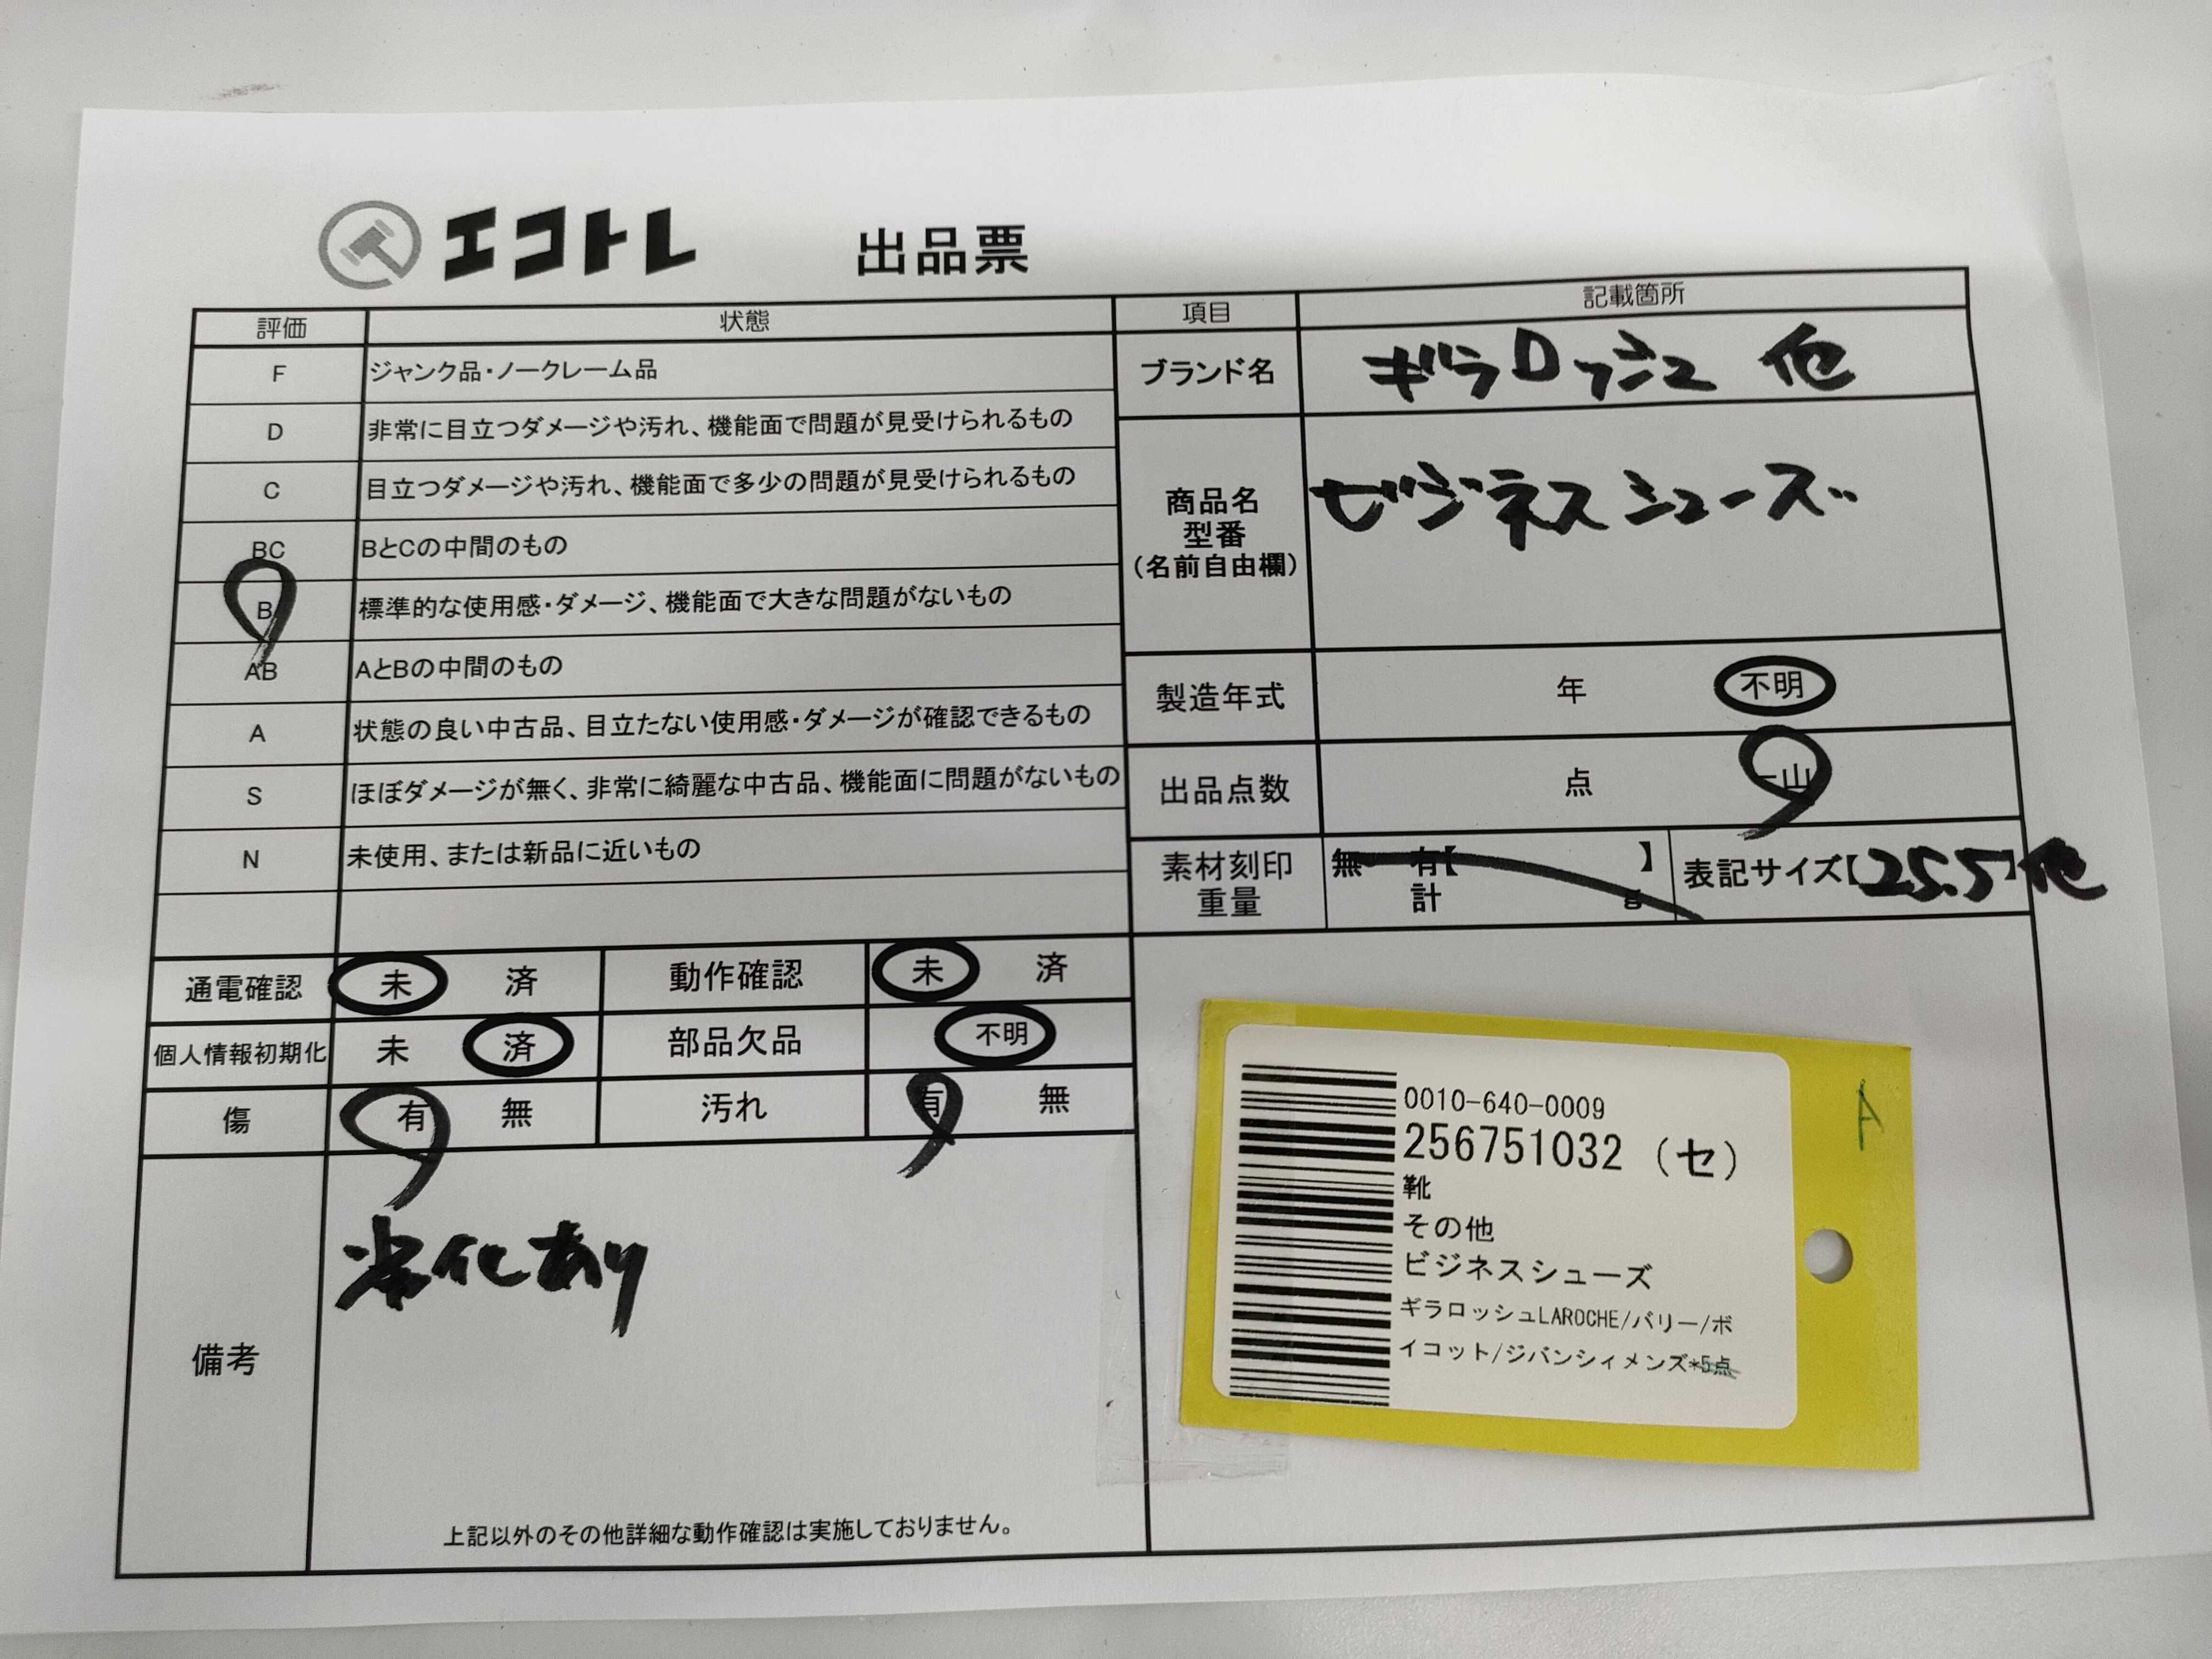 エコトレ 出品票
評価 状態 項目 記載箇所
F ジャンク品・ノークレーム品
D 非常に目立つダメージや汚れ、機能面で問題が見受けられるもの
C 目立つダメージや汚れ、機能面で多少の問題が見受けられるもの
BC BとCの中間のもの
B 標準的な使用感・ダメージ、機能面で大きな問題がないもの
AB AとBの中間のもの
A 状態の良い中古品、目立たない使用感・ダメージが確認できるもの
S ほぼダメージが無く、非常に綺麗な中古品、機能面に問題がないもの
N 未使用、または新品に近いもの
ブランド名 ギラロッシュ 他
商品名
型番
(名前自由欄)
ビジネスシューズ
製造年式 年 不明
出品点数 点 一山
素材刻印 無 有【 】
重量 計 g
表記サイズ【25.5】他
通電確認 未 済 動作確認 未 済
個人情報初期化 未 済 部品欠品 不明
傷 有 無 汚れ 有 無
備考
劣化あり
上記以外のその他詳細な動作確認は実施しておりません。
0010-640-0009
256751032 (セ)
靴
その他
ビジネスシューズ
ギラロッシュLAROCHE/バリー/ボ
イコット/ジバンシィメンズ*5点
A